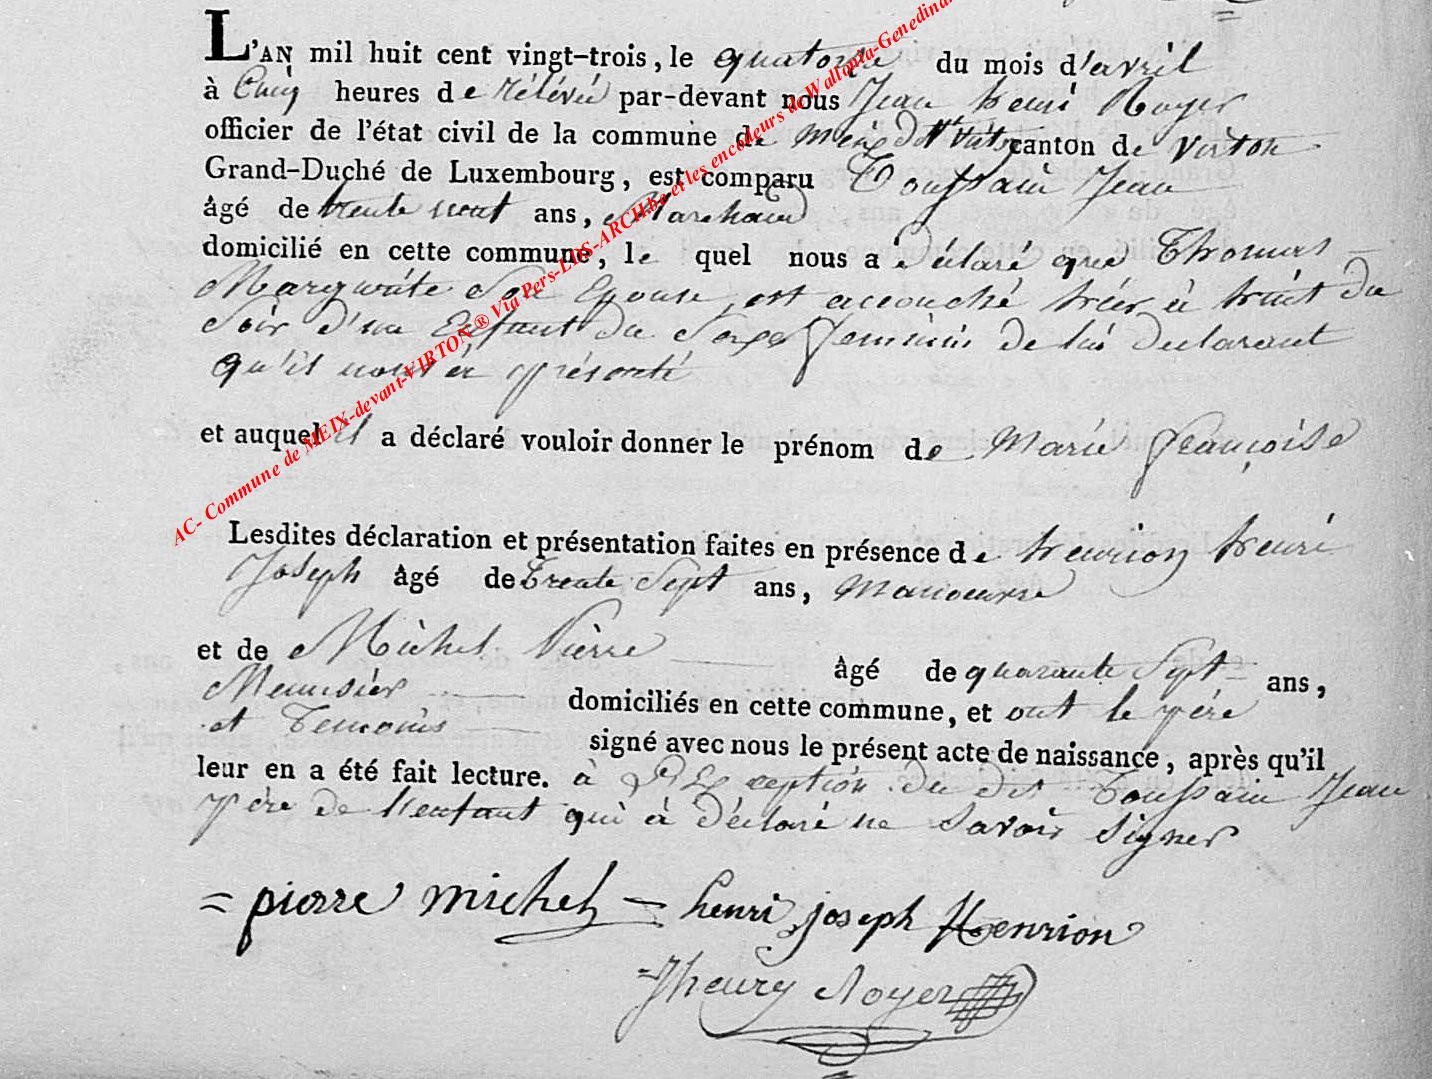 L'AN mil huit cent vingt-trois, le quatorze du mois d'avril
à Cinq heures de rélévée par-devant nous Jean henri Royer
officier de l'état civil de la commune de Meix dt Virton canton de Virton
Grand-Duché de Luxembourg, est comparu Toussain Jean
âgé de trente neuf ans, Marchand
domicilié en cette commune, le quel nous a déclaré que Thomas
Marguerite Son Epouse, est accouché hier à huit du
Soir d'un Enfant du Sexe feminin de lui declarant
qu'il nous à présenté
et auquel il a déclaré vouloir donner le prénom de Marie françoise
Lesdites déclaration et présentation faites en présence de henrion henri
Joseph âgé de trente Sept ans, Manoeuvre
et de Michel Pierre âgé de quarante Sept ans,
Menusier domiciliés en cette commune, et ont le père
et Temoins signé avec nous le présent acte de naissance, après qu'il
leur en a été fait lecture. à L'Exception du dit Toussain Jean
père de l'enfant qui à déclaré ne Savoir Signer
= pierre michel = henri joseph Henrion
= Jhenry Royer
AC- Commune de MEIX-devant-VIRTON ® Via Pers-LDS-ARCH.be et les encodeurs de Wallonia-Genedinan